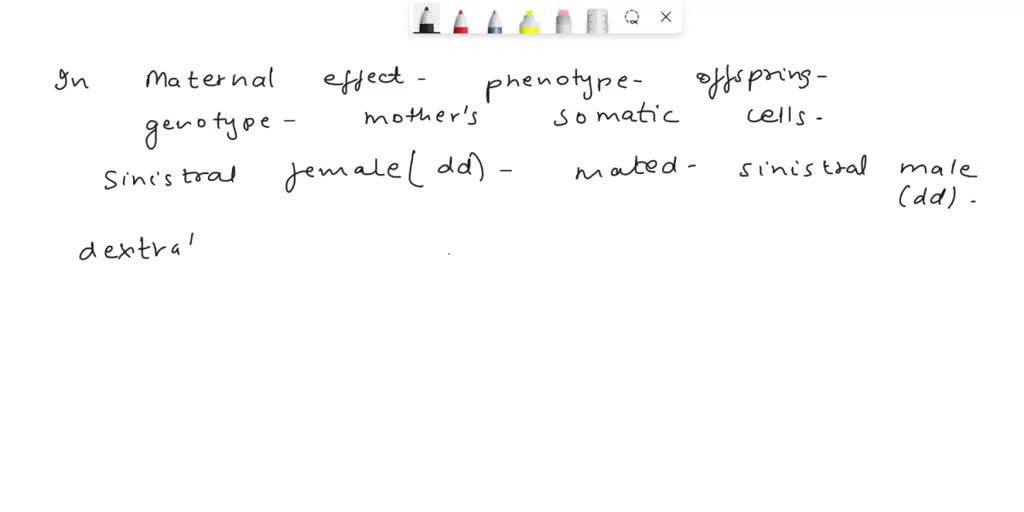 In Maternal effect - phenotype - offspring -
genotype - mother's somatic cells.
Sinistral female (dd) - mated - sinistral male
(dd).
dextral